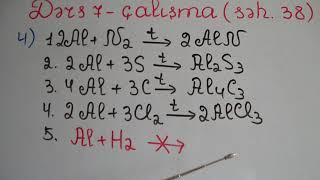 Dərs 7 - çalışma (səh. 38)
4) 1 2Al + N₂ →t 2AlN
2. 2Al + 3S →t Al₂S₃
3. 4Al + 3C →t Al₄C₃
4. 2Al + 3Cl₂ →t 2AlCl₃
5. Al + H₂ ↛